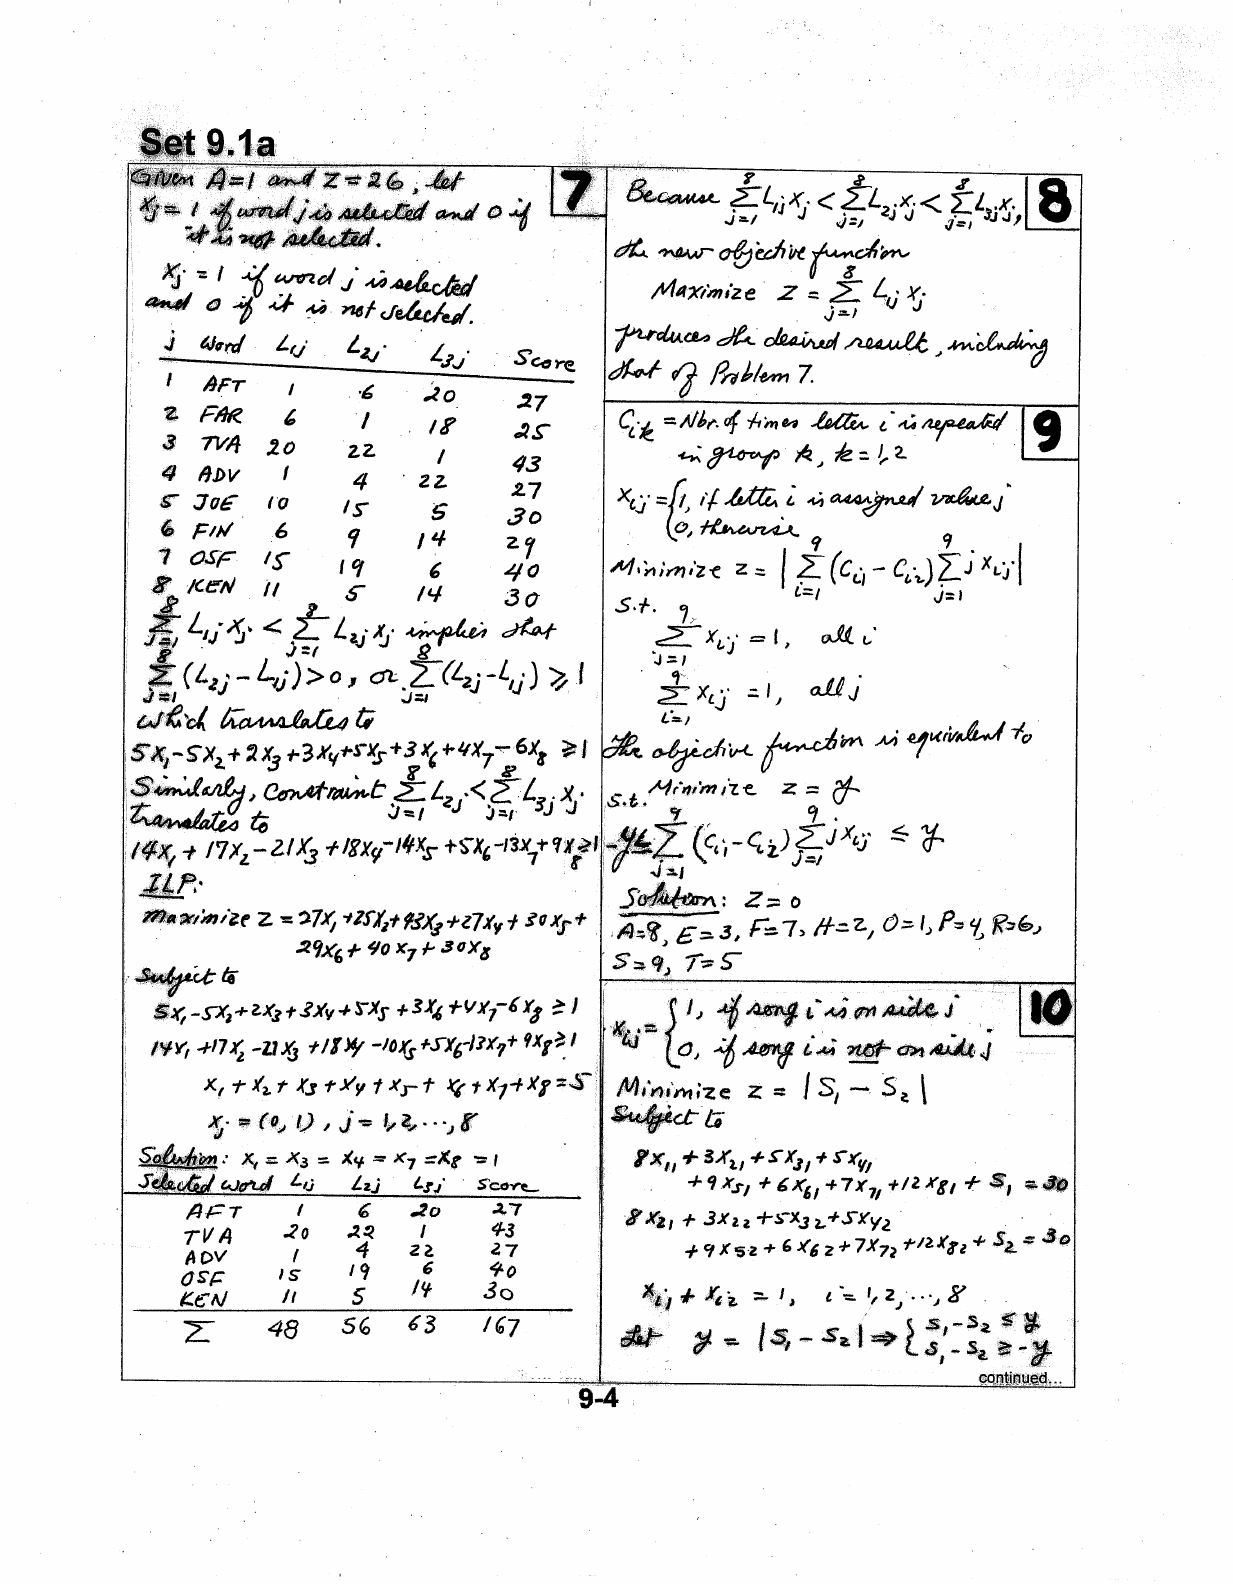 Set 9.1a
7
Given A=1 and Z=26, let
xj = 1 if word j is selected and 0 if
it is not selected.
xj = 1 if word j is selected
and 0 if it is not selected.
j Word L1j L2j L3j Score
1 AFT 1 6 20 27
2 FAR 6 1 18 25
3 TVA 20 22 1 43
4 ADV 1 4 22 27
5 JOE 10 15 5 30
6 FIN 6 9 14 29
7 OSF 15 19 6 40
8 KEN 11 5 14 30
∑_{j=1}^{8} L1j xj < ∑_{j=1}^{8} L2j xj implies that
∑_{j=1}^{8} (L2j − L1j) > 0, or ∑_{j=1}^{8} (L2j − L1j) ≥ 1
which translates to
5x1 − 5x2 + 2x3 + 3x4 + 5x5 + 3x6 + 4x7 − 6x8 ≥ 1
Similarly, Constraint ∑_{j=1}^{8} L2j < ∑_{j=1}^{8} L3j xj
translates to
14x1 + 17x2 − 21x3 + 18x4 − 14x5 + 5x6 − 13x7 + 9x8 ≥ 1
ILP:
maximize Z = 27x1 + 25x2 + 43x3 + 27x4 + 30x5 +
29x6 + 40x7 + 30x8
Subject to
5x1 − 5x2 + 2x3 + 3x4 + 5x5 + 3x6 + 4x7 − 6x8 ≥ 1
14x1 + 17x2 − 21x3 + 18x4 − 10x5 + 5x6 − 13x7 + 9x8 ≥ 1
x1 + x2 + x3 + x4 + x5 + x6 + x7 + x8 = 5
xj = (0, 1), j = 1, 2, ..., 8
Solution: x1 = x3 = x4 = x7 = x8 = 1
Selected word L1j L2j L3j Score
AFT 1 6 20 27
TVA 20 22 1 43
ADV 1 4 22 27
OSF 15 19 6 40
KEN 11 5 14 30
∑ 48 56 63 167
8
Because ∑_{j=1}^{8} L1j xj < ∑_{j=1}^{8} L2j xj < ∑_{j=1}^{8} L3j xj,
the new objective function
Maximize Z = ∑_{j=1}^{8} L1j xj
produces the desired result, including
that of Problem 7.
9
Cik = Nbr. of times letter i is repeated
in group k, k = 1, 2
xij = {1, if letter i is assigned value j
0, therwise
Minimize z = | ∑_{i=1}^{9} (Ci1 − Ci2) ∑_{j=1}^{9} j xij |
s.t.
∑_{j=1}^{9} xij = 1, all i
∑_{i=1}^{9} xij = 1, all j
The objective function is equivalent to
Minimize z = y
s.t.
−y ≤ ∑_{j=1}^{9} (Ci1 − Ci2) ∑_{j=1}^{9} j xij ≤ y
Solution: Z = 0
A=8, E=3, F=7, H=2, O=1, P=4, R=6,
S=9, T=5
10
xij = {1, if song i is on side j
0, if song i is not on side j
Minimize z = |S1 − S2|
Subject to
8x11 + 3x21 + 5x31 + 5x41
+ 9x51 + 6x61 + 7x71 + 12x81 + S1 = 30
8x21 + 3x22 + 5x32 + 5x42
+ 9x52 + 6x62 + 7x72 + 12x82 + S2 = 30
xi1 + xi2 = 1, i = 1, 2, ..., 8
Let y = |S1 − S2| ⇒ {S1 − S2 ≤ y
S1 − S2 ≥ −y
continued...
9-4